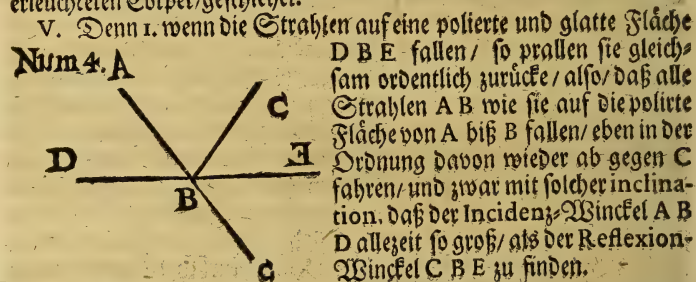 erleuchteten Cörper/geschiehet.
V. Denn 1. wenn die Strahlen auf eine polierte und glatte Fläche
D B E fallen / so prallen sie gleich⸗
sam ordentlich zurücke / also / daß alle
Strahlen A B wie sie auf die polirte
Fläche von A biß B fallen / eben in der
Ordnung davon wieder ab gegen C
fahren / und zwar mit solcher inclina-
tion, daß der Incidenz⸗Winckel A B
D allezeit so groß / als der Reflexion-
Winckel C B E zu finden.
Num 4. A
C
D
E
B
G